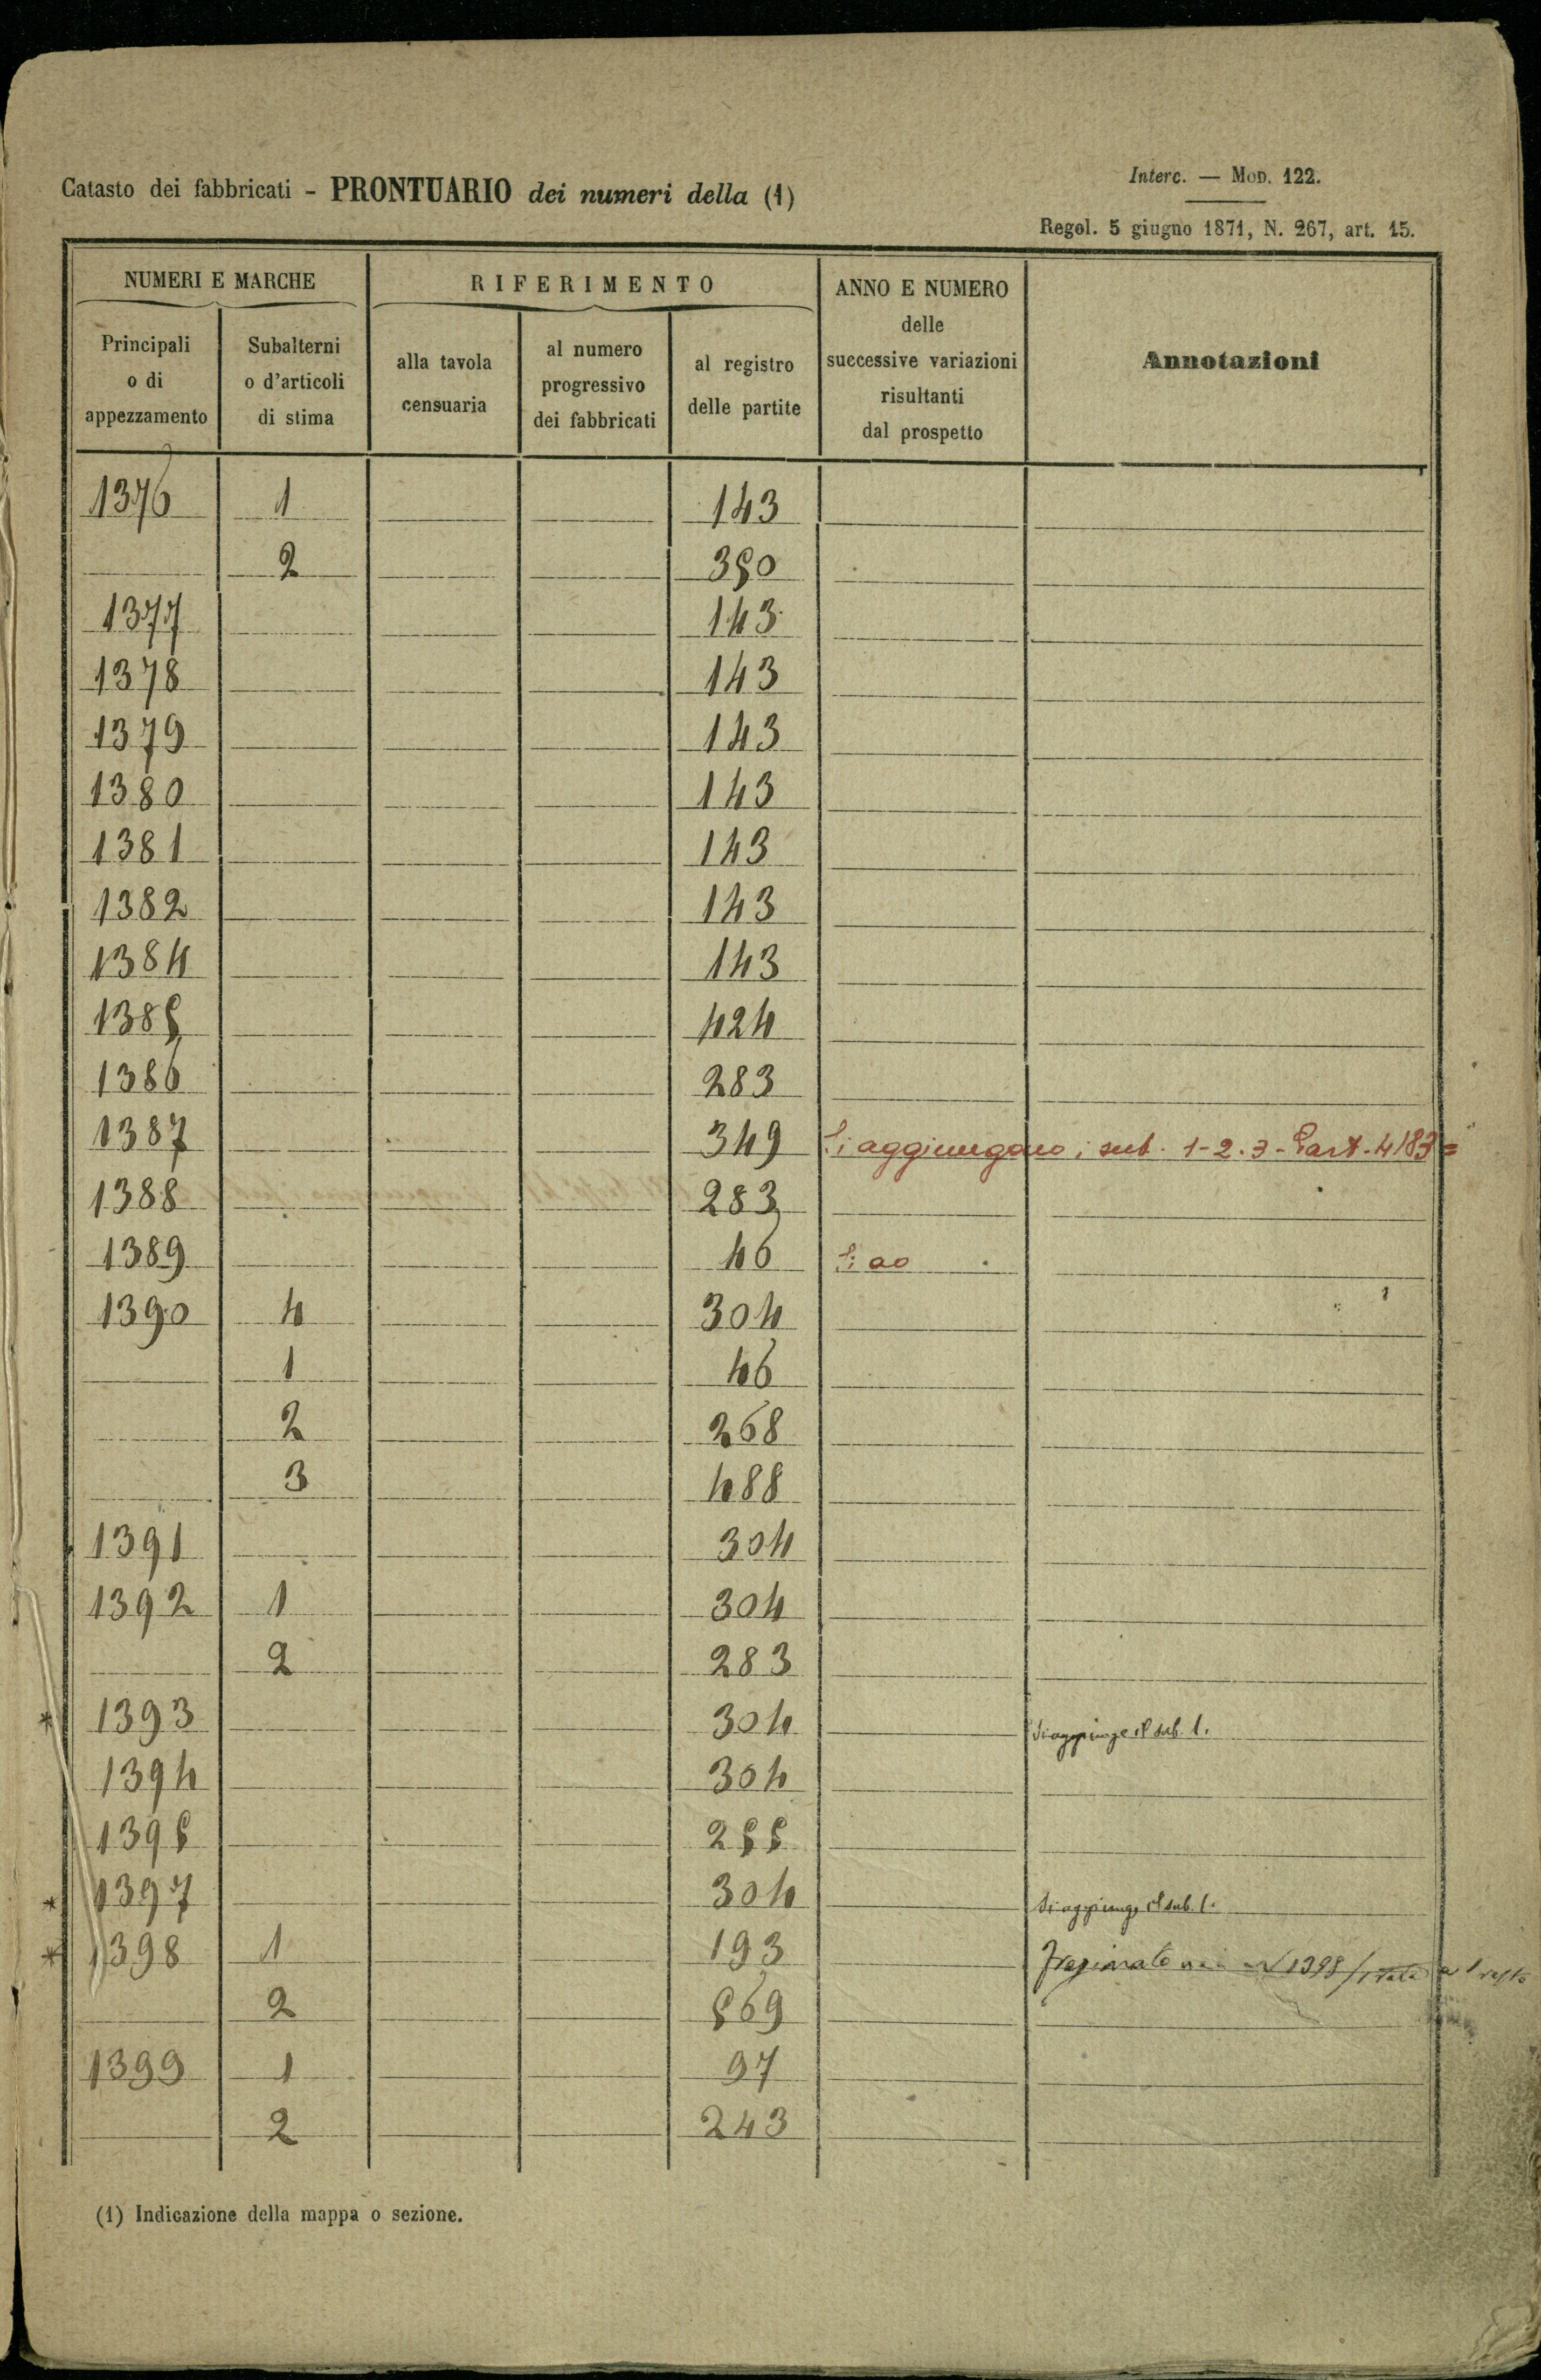 Catasto dei fabbricati - PRONTUARIO dei numeri della (1)
Interc. — Mod. 122.
Regol. 5 giugno 1871, N. 267, art. 15.
NUMERI E MARCHE
RIFERIMENTO
ANNO E NUMERO delle successive variazioni risultanti dal prospetto
Annotazioni
Principali o di appezzamento
Subalterni o d'articoli di stima
alla tavola censuaria
al numero progressivo dei fabbricati
al registro delle partite
1376 1 143
2 350
1377 143
1378 143
1379 143
1380 143
1381 143
1382 143
1384 143
1385 424
1386 283
1387 349 Si aggiungono i sub. 1-2.3- Part. 4183=
1388 283
1389 46 Si
1390 4 304
1 46
2 268
3 488
1391 304
1392 1 304
2 283
* 1393 304 Si aggiunge il sub. 1.
1394 304
1395 255
* 1397 304 Si aggiunge il sub. 1.
* 1398 1 193 Frazionato 1398/1
2 569
1399 1 97
2 243
(1) Indicazione della mappa o sezione.